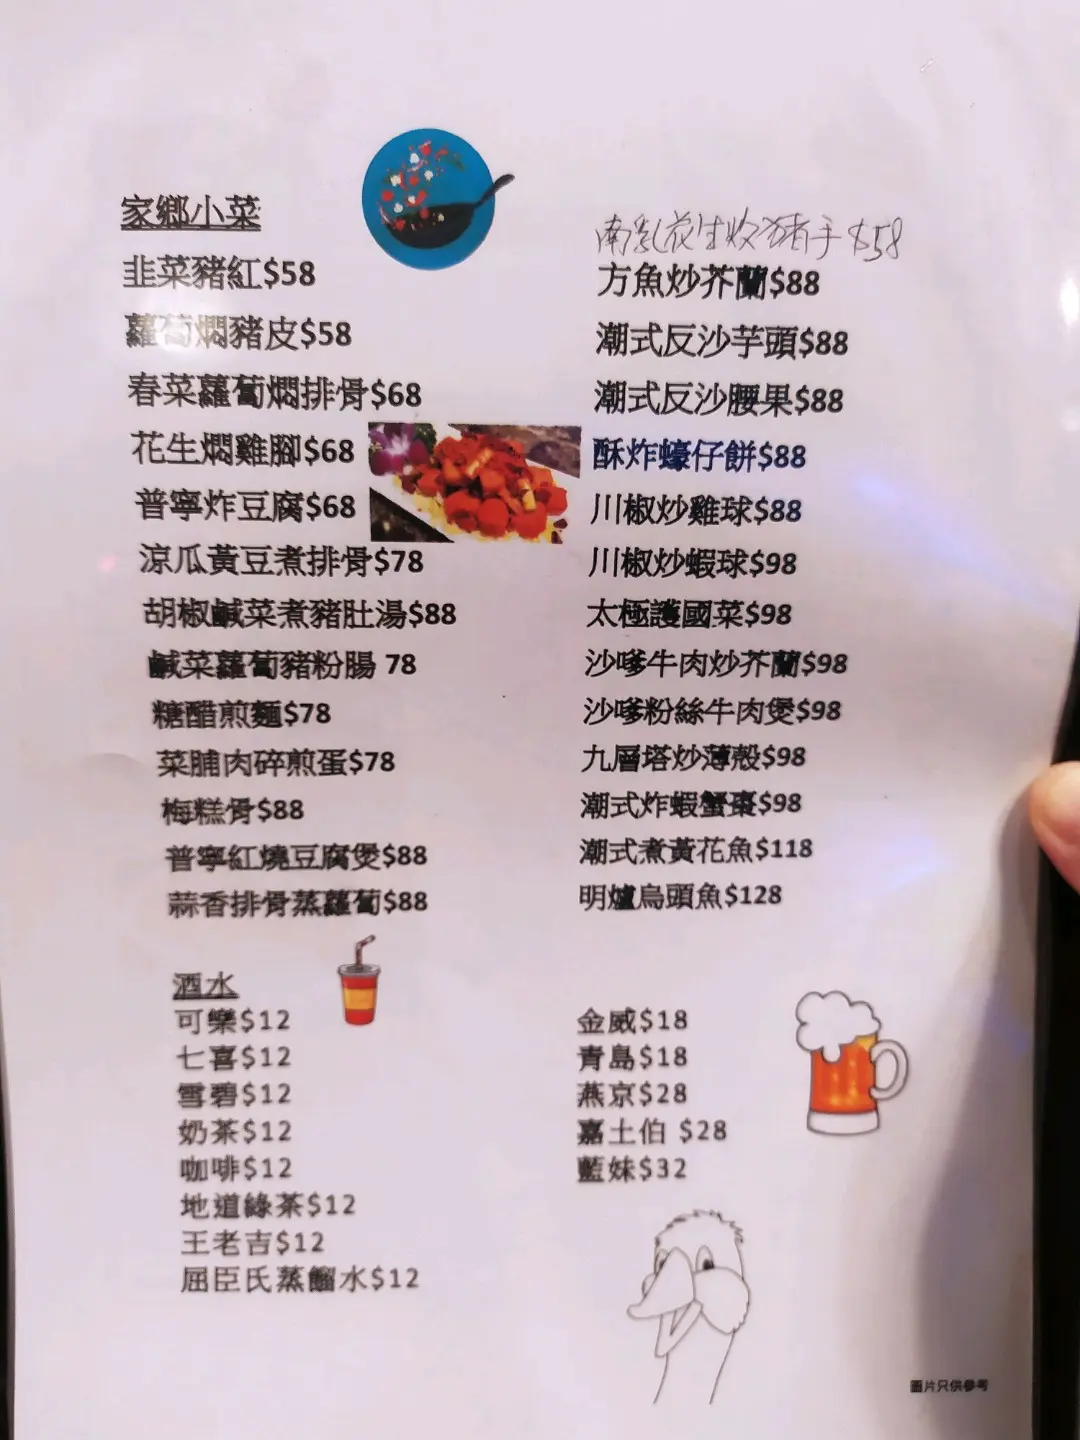 家鄉小菜
韭菜豬紅$58
蘿蔔燜豬皮$58
春菜蘿蔔燜排骨$68
花生燜雞腳$68
普寧炸豆腐$68
涼瓜黃豆煮排骨$78
胡椒鹹菜煮豬肚湯$88
鹹菜蘿蔔豬粉腸 78
糖醋煎麵$78
菜脯肉碎煎蛋$78
梅糕骨$88
普寧紅燒豆腐煲$88
蒜香排骨蒸蘿蔔$88
南乳花生炆猪手 $58
方魚炒芥蘭$88
潮式反沙芋頭$88
潮式反沙腰果$88
酥炸蠔仔餅$88
川椒炒雞球$88
川椒炒蝦球$98
太極護國菜$98
沙嗲牛肉炒芥蘭$98
沙嗲粉絲牛肉煲$98
九層塔炒薄殼$98
潮式炸蝦蟹棗$98
潮式煮黃花魚$118
明爐烏頭魚$128
酒水
可樂$12
七喜$12
雪碧$12
奶茶$12
咖啡$12
地道綠茶$12
王老吉$12
屈臣氏蒸餾水$12
金威$18
青島$18
燕京$28
嘉士伯 $28
藍妹$32
圖片只供參考